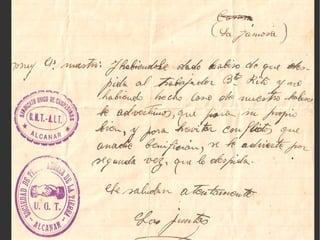 (La famosa)
Muy Sr. nuestro: Habiéndole dado aviso de que des-
pida al trabajador Bta. Reté y no
habiendo hecho caso de nuestro aviso
le advertimos, que para su propio
bien, y para hevitar conflictos que
a nadie benificiarian, se le advierte por
segunda vez, que le despida.
Le saludan atentamente
Las juntas
SINDICATO UNICO DE CAMPESINOS
C.N.T.-A.I.T.
ALCANAR
SOCIEDAD DE DE LA TIERRA
U.G.T.
ALCANAR